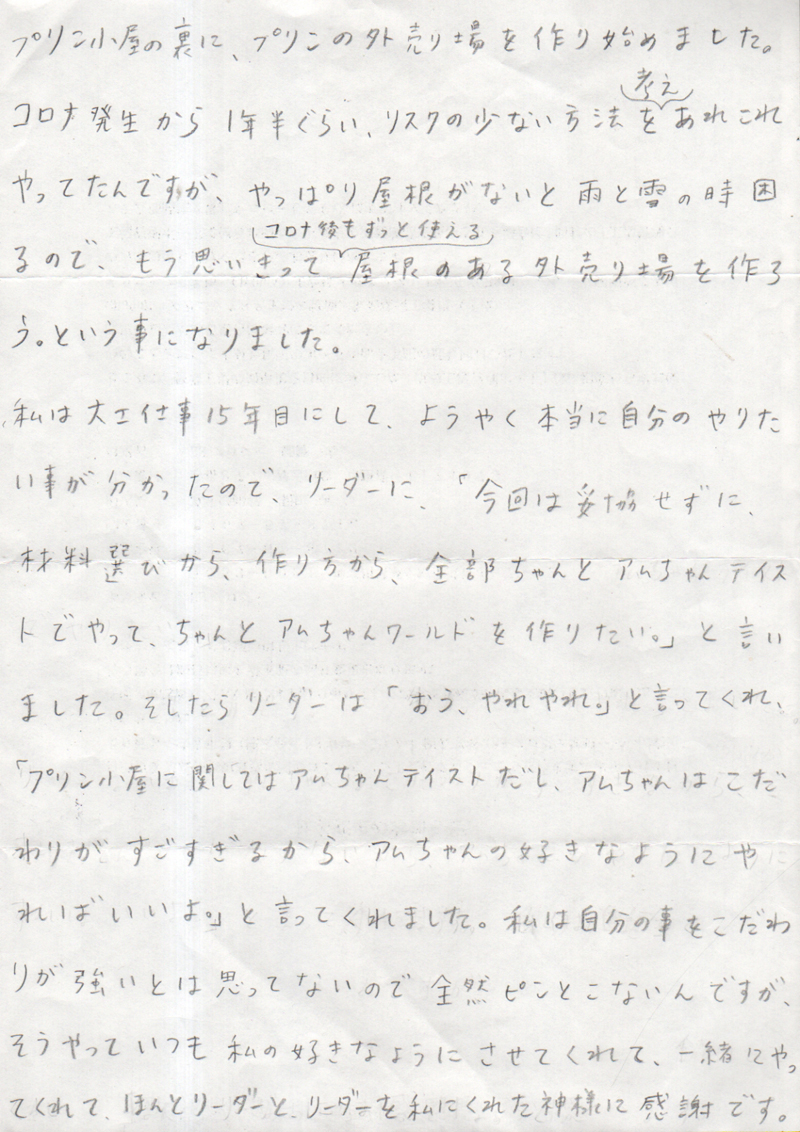 プリン小屋の裏に、プリンの外売り場を作り始めました。
考え
コロナ発生から1年半ぐらい、リスクの少ない方法をあれこれ
やってたんですが、やっぱり屋根がないと雨と雪の時困
るので、もう思いきって屋根のある外売り場を作ろ
コロナ後もずっと使える
う。という事になりました。
私は大工仕事15年目にして、ようやく本当に自分のやりた
い事が分かったので、リーダーに、「今回は妥協せずに、
材料選びから、作り方から、全部ちゃんとアムちゃんテイス
トでやって、ちゃんとアムちゃんワールドを作りたい。」と言い
ました。そしたらリーダーは「おう、やれやれ。」と言ってくれ、
「プリン小屋に関してはアムちゃんテイストだし、アムちゃんはこだ
わりがすごすぎるから、アムちゃんの好きなようにや
ればいいよ。」と言ってくれました。私は自分の事をこだわ
りが強いとは思ってないので全然ピンとこないんですが、
そうやっていつも私の好きなようにさせてくれて、一緒にやっ
てくれて、ほんとリーダーと、リーダーを私にくれた神様に感謝です。